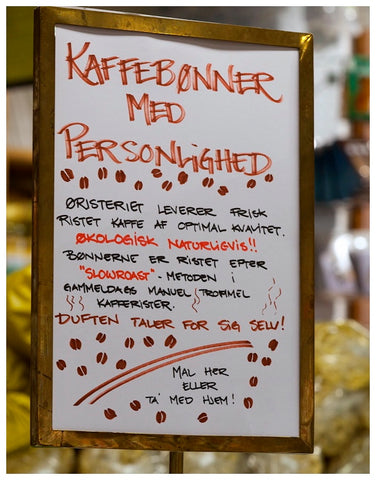 KAFFEBØNNER
MED
PERSONLIGHED
ØRISTERIET LEVERER FRISK
RISTET KAFFE AF OPTIMAL KVALITET.
ØKOLOGISK NATURLIGVIS!!
BØNNERNE ER RISTET EFTER
"SLOWROAST"-METODEN I
GAMMELDAGS MANUEL TROMMEL
KAFFERISTER.
DUFTEN TALER FOR SIG SELV!
MAL HER
ELLER
TA' MED HJEM!